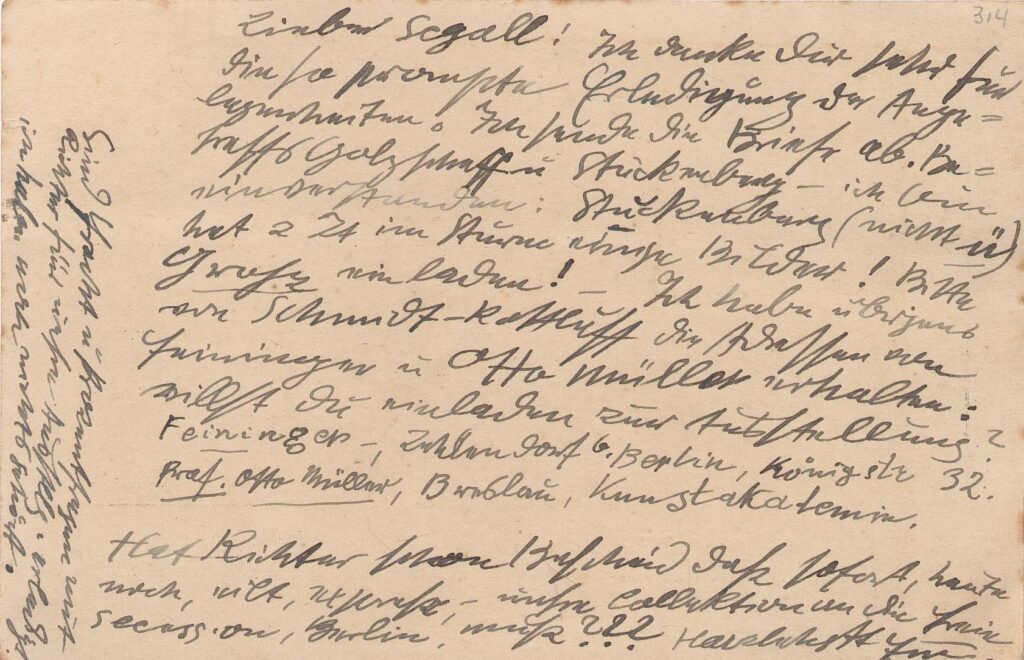 314
Lieber Segall! Ich danke Dir sehr für
die so prompte Erledigung der Ange=
legenheiten. Ich sende die Briefe ab. Be=
treffs Golyscheff u Stuckenberg – ich bin
einverstanden: Stuckenberg (nicht ü)
hat z Zt im Sturm einige Bilder! Bitte
Grosz einladen! – Ich habe übrigens
von Schmidt-Rottluff die Adressen von
Feininger u Otto Müller erhalten:
willst Du einladen zur Ausstellung?
Feininger, Zehlendorf b. Berlin, Königstr 32.
Prof. Otto Müller, Breslau, Kunstakademie.
Hat Richter schon Bescheid daß sofort, heute
noch, eilt, express, – unsre Collektion an die Freie
Secession, Berlin, muß??? Herzlichst
Sind Fracht u mit
Richter für uns erledigt.
wir haben noch nichts gehört.